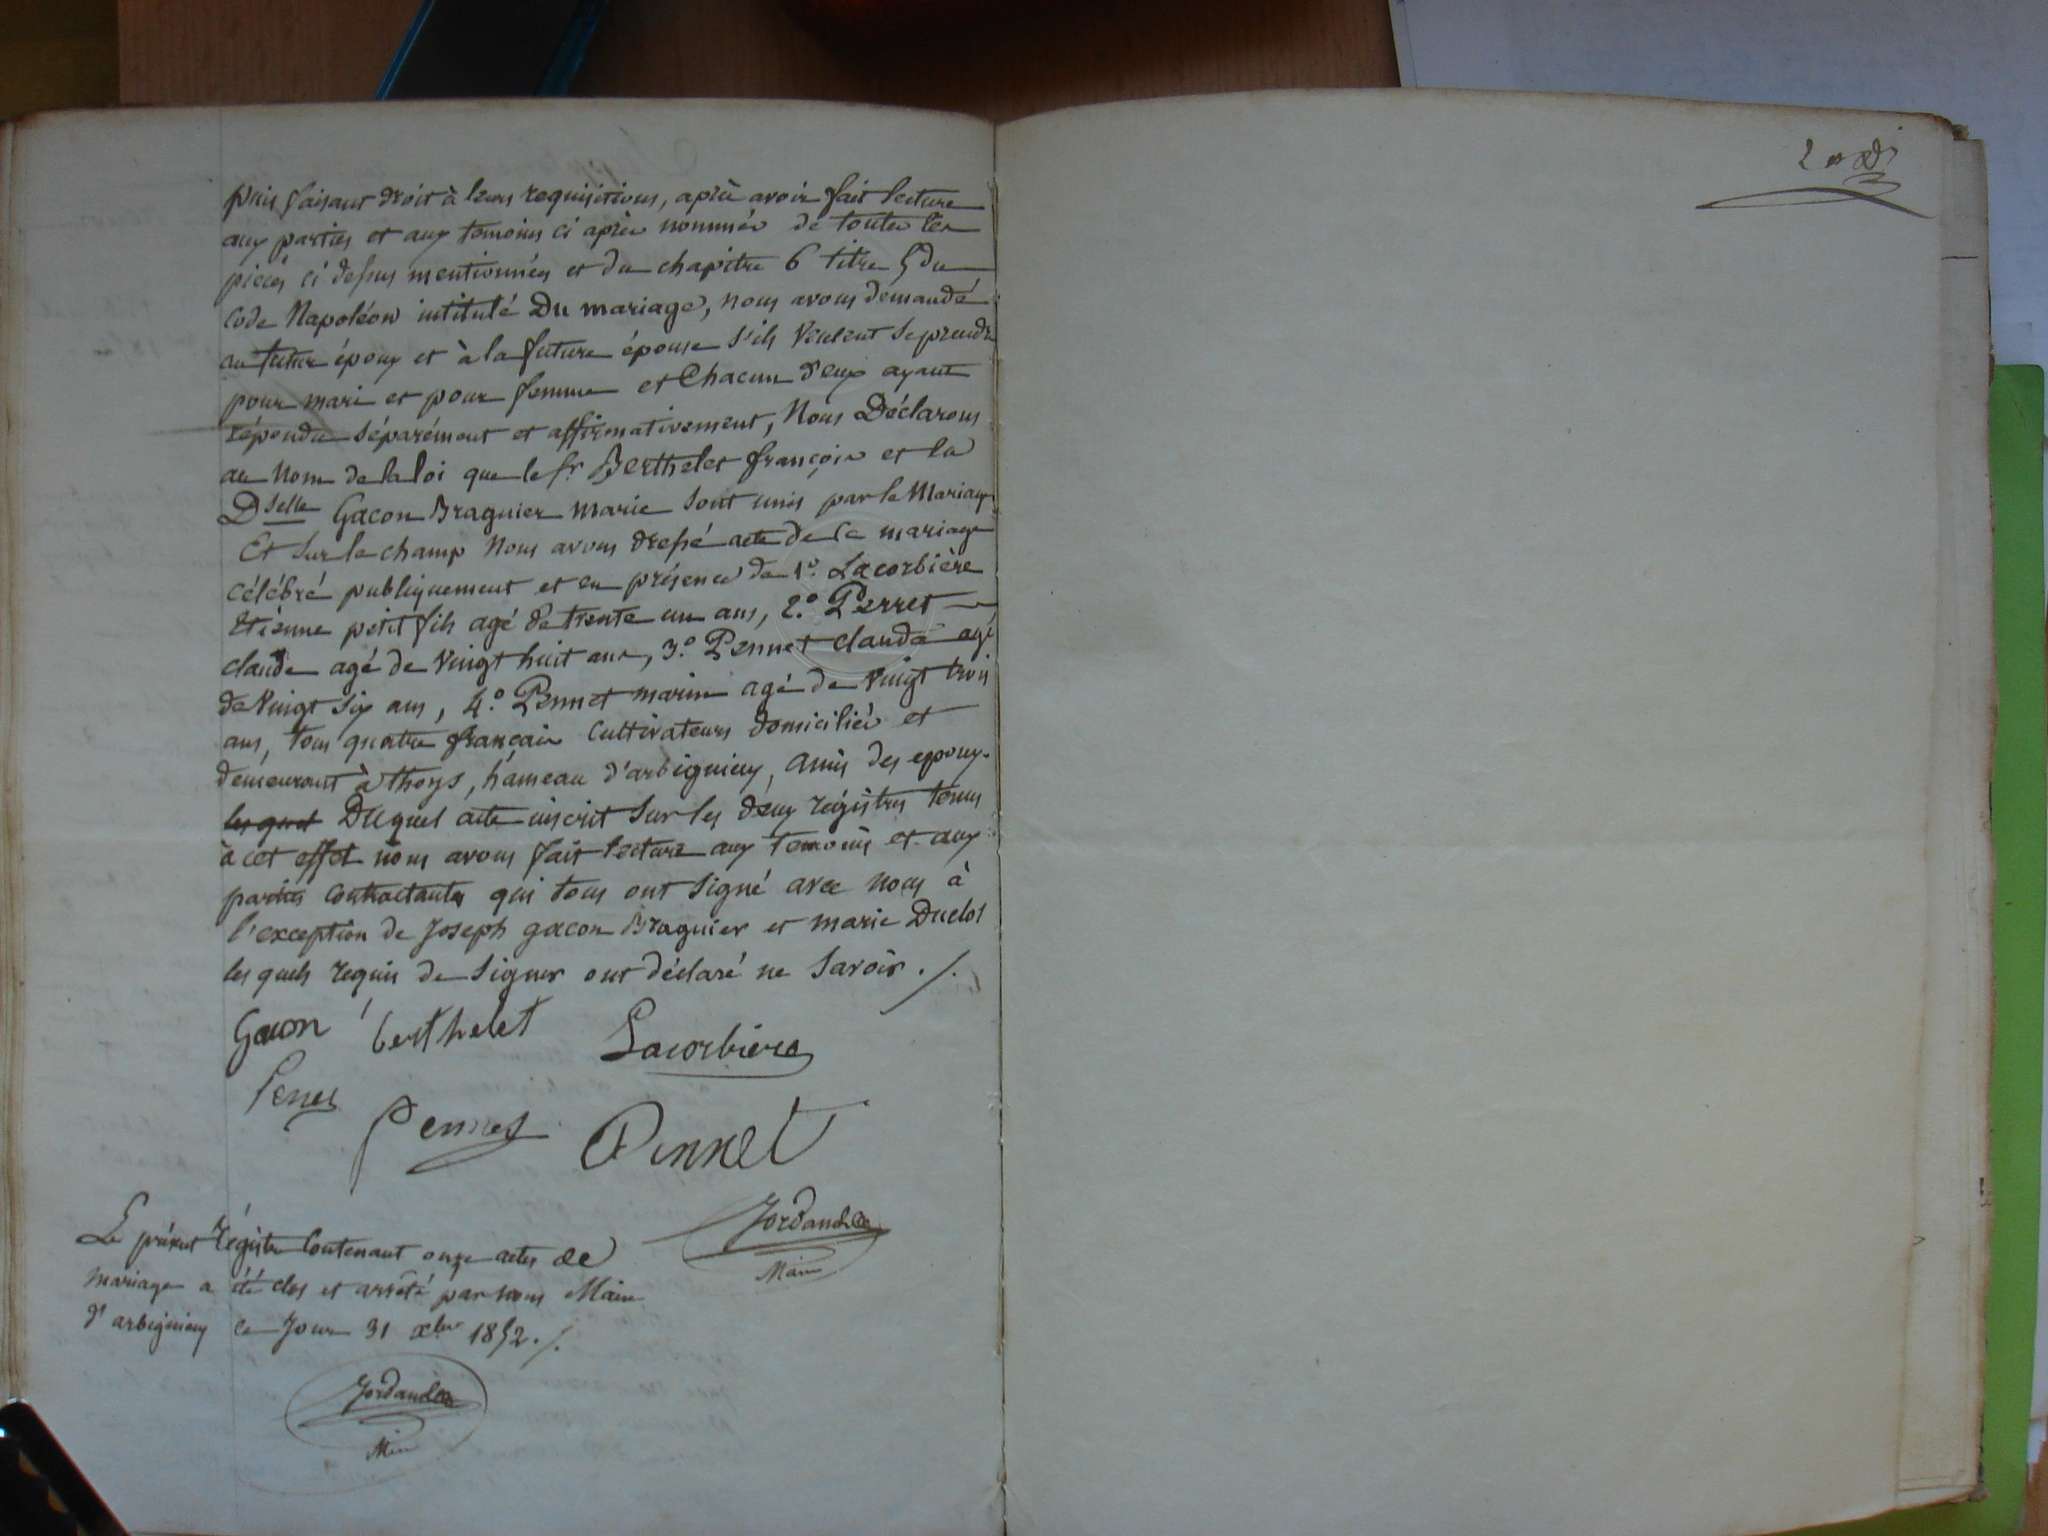 puis faisant droit à leurs requisitions, après avoir fait lecture
aux parties et aux temoins ci après nommés de toutes les
pieces ci dessus mentionnées et du chapitre 6 titre 5 du
Code Napoléon intitulé Du mariage, nous avons demandé
au futur époux et à la future épouse s'ils veulent se prendre
pour mari et pour femme et Chacun d'eux ayant
répondu séparément et affirmativement, Nous Déclarons
au nom de la loi que le Sr Berthelet françois et la
Dselle Gacon Braguier marie sont unis par le Mariage
Et sur le champ Nous avons dressé acte de ce mariage
célébré publiquement et en présence de 1º. Lacorbière
Etiénne petit fils agé de trente un ans, 2.º Perret
claude agé de vingt huit ans, 3.º Pennet claude agé
de vingt six ans, 4.º Pennet marin agé de vingt trois
ans, tous quatre français Cultivateurs domiciliés et
demeurant à thoys, hameau d'arbignieu, amis des epoux.
les quel Duquel acte inscrit sur les deux régistres tenus
à cet effet nous avons fait lecture aux temoins et aux
parties contractantes qui tous ont signé avec nous à
l'exception de Joseph gacon Braguier et marie Duclos
les quels requis de signer ont déclaré ne savoir ./.
Gacon berthelet Lacorbiere
Pennet Pennet
Maire
Le présent régistre Contenant onze actes de
mariage a été clos et arrêté par nous Maire
d'arbignieu ce Jour 31 xbre 1852./.